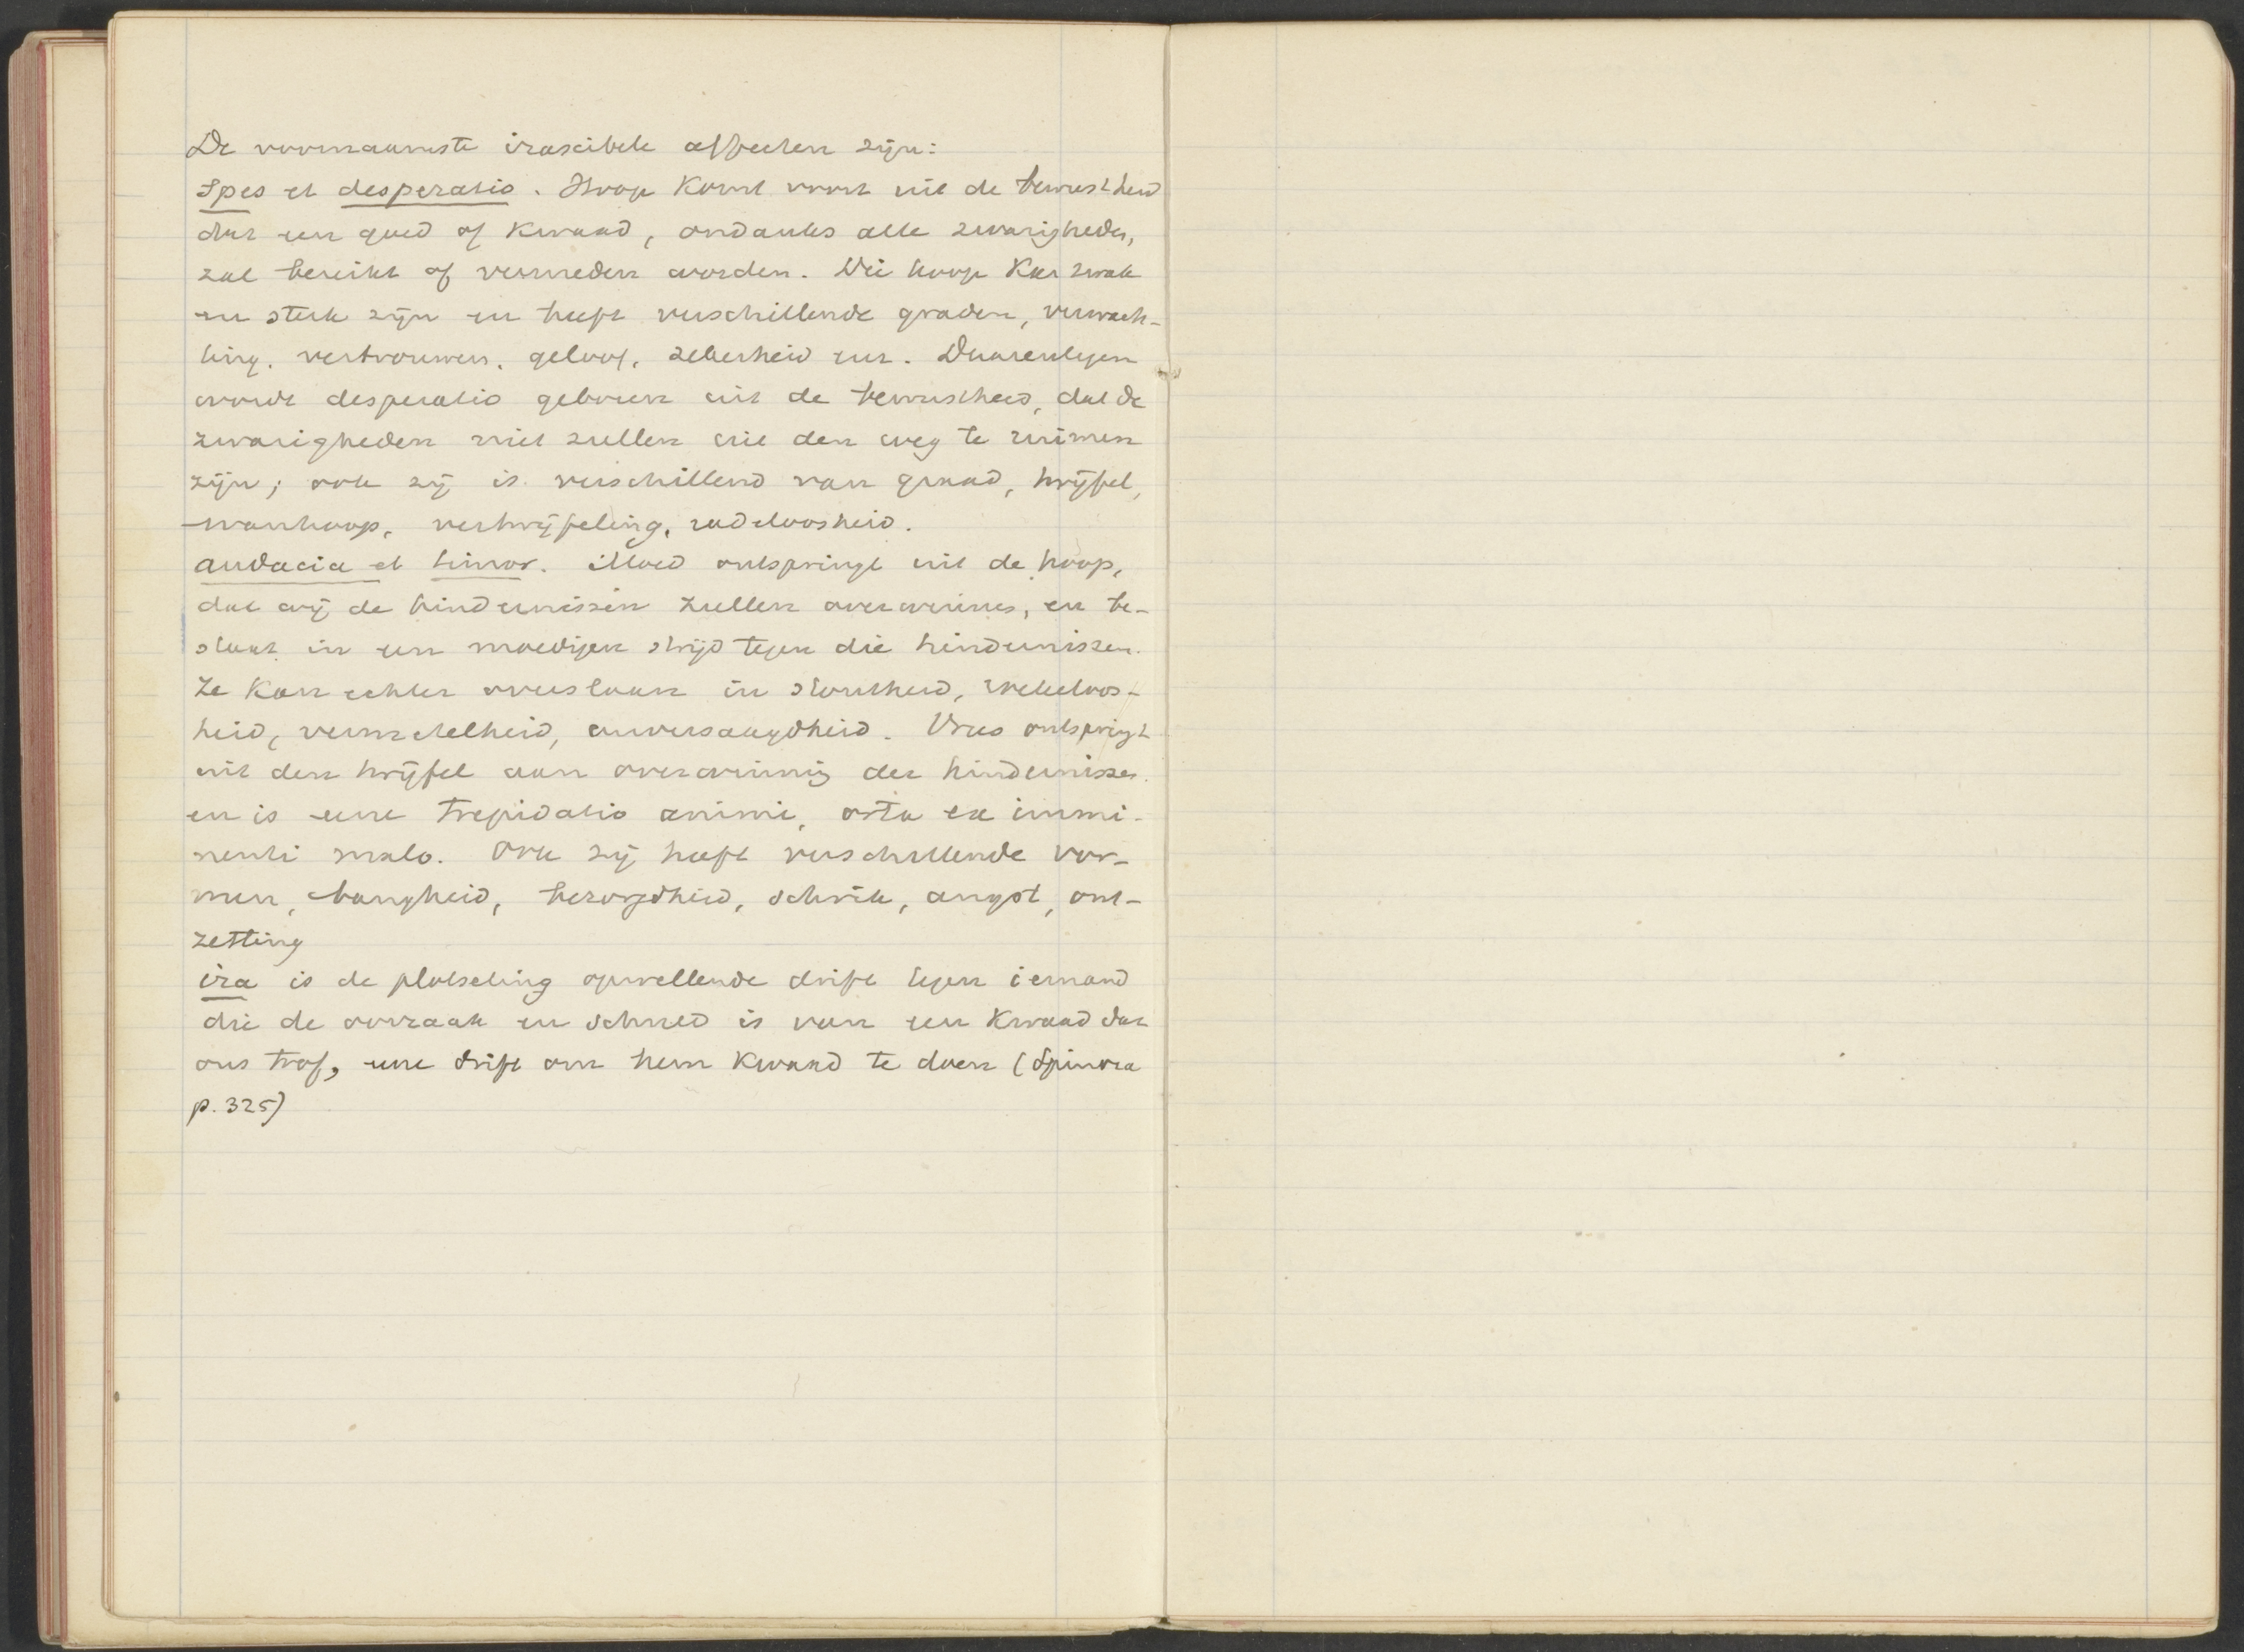 De voornaamste irascibele affecten zijn:
Spes et desperatio. Hoop komt voort uit de bewustheid
dat een goed of kwaad, ondanks alle zwarigheden,
zal bereikt of vermeden worden. Die hoop kan zwak
en sterk zijn en heeft verschillende graden, verwach-
ting, vertrouwen, geloof, zekerheid enz. Daarentegen
wordt desperatio geboren uit de bewustheid, dat de
zwarigheden niet zullen uit den weg te ruimen
zijn; ook zij is verschillend van graad, twijfel,
wanhoop, vertwijfeling, radeloosheid.
audacia et timor. Moed ontspringt uit de hoop,
dat wij de hindernissen zullen overwinnen, en be-
staat in een moedigen strijd tegen die hindernissen.
Ze kan echter overslaan in stoutheid, roekeloos-
heid, vermetelheid, onversaagdheid. Vrees ontspringt
uit den twijfel aan overwinning der hindernissen
en is eene trepidatio animi, orta ex immi-
nenti malo. Ook zij heeft verschillende vor-
men, bangheid, bezorgdheid, schrik, angst, ont-
zetting
ira is de plotseling opwellende drift tegen iemand
die de oorzaak en schuld is van een kwaad dat
ons trof, eene drift om hem kwaad te doen (Spinoza
p. 325)